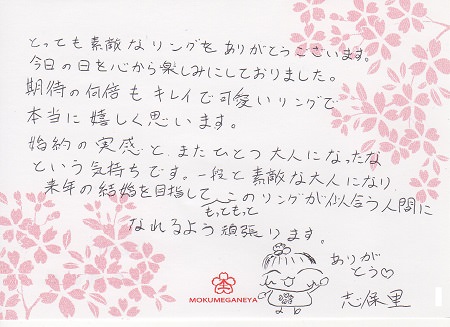 とっても素敵なリングをありがとうございます。
今日の日を心から楽しみにしておりました。
期待の何倍もキレイで可愛いリングで
本当に嬉しく思います。
婚約の実感と、またひとつ大人になったな
という気持ちです。一段と素敵な大人になり
来年の結婚を目指して、このリングが似合う人間に
もってもって
なれるよう頑張ります。
ありが
とう♡
志保里
MOKUMEGANEYA